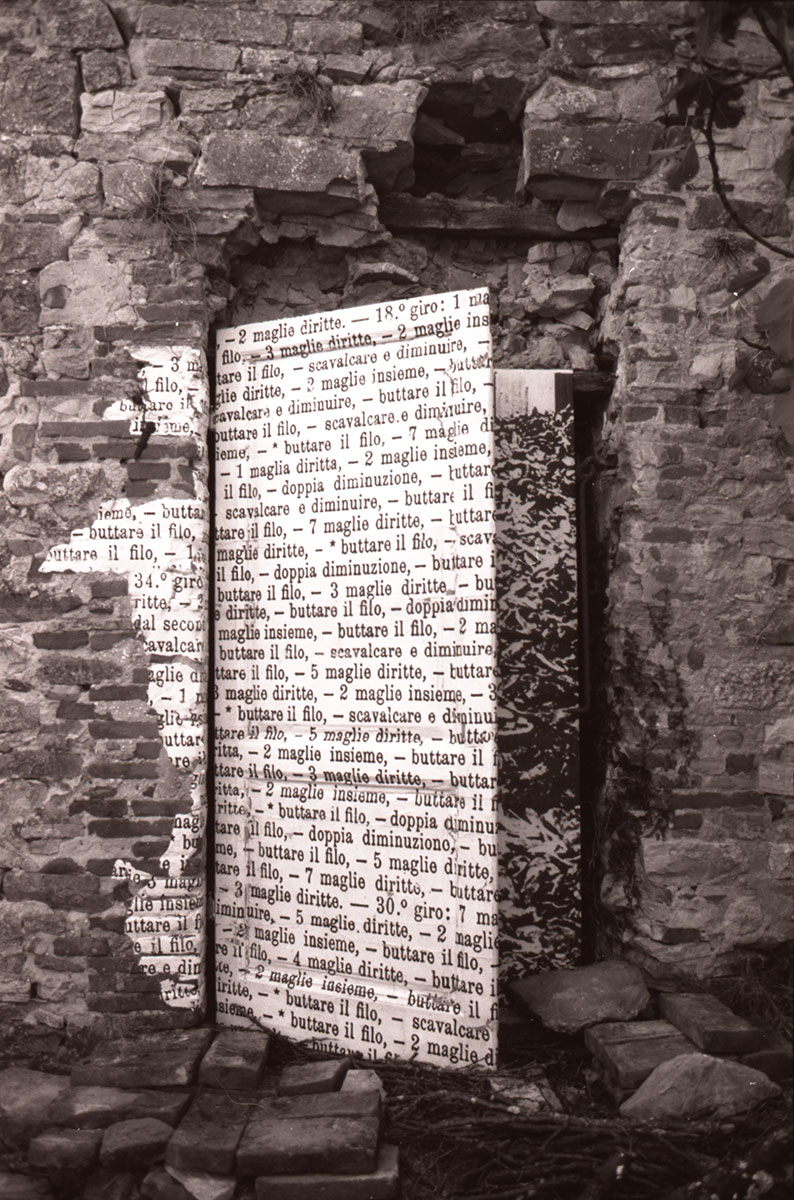 – 2 maglie diritte. — 18.º giro: 1 ma
filo, – 3 maglie diritte, – 2 maglie ins
tare il filo, – scavalcare e diminuire, –
glie diritte, – 2 maglie insieme, – butta
cavalcare e diminuire, – buttare il filo, –
buttare il filo, – scavalcare e diminuire,
ieme, – * buttare il filo, – 7 maglie di
– 1 maglia diritta, – 2 maglie insieme,
il filo, – doppia diminuzione, – buttare
scavalcare e diminuire, – buttare il fi
ttare il filo, – 7 maglie diritte, – buttare
maglie diritte, – * buttare il filo, – scava
il filo, – doppia diminuzione, – buttare il
buttare il filo, – 3 maglie diritte, – bu
e diritte, – buttare il filo, – doppia dimin
maglie insieme, – buttare il filo, – 2 ma
buttare il filo, – scavalcare e diminuire,
ttare il filo, – 5 maglie diritte, – buttare
3 maglie diritte, – 2 maglie insieme, – 3
– * buttare il filo, – scavalcare e diminui
ttare il filo, – 5 maglie diritte, – buttare
ritta, – 2 maglie insieme, – buttare il f
ttare il filo, – 3 maglie diritte, – buttar
ritta, – 2 maglie insieme, – buttare il f
ritte, – * buttare il filo, – doppia diminu
tare il filo, – doppia diminuzione, – bu
me, – buttare il filo, – 5 maglie diritte,
tare il filo, – 7 maglie diritte, – buttare
– 3 maglie diritte. — 30.º giro: 7 ma
iminuire, – 5 maglie diritte, – 2 maglie
– 2 maglie insieme, – buttare il filo, –
re il filo, – 4 maglie diritte, – buttare il
– 2 maglie insieme, – buttare il f
iritte, – * buttare il filo, – scavalcare
sieme, – * buttare il filo, – 2 maglie di
buttare il fi
– 3 m
il filo,
buttare il f
insieme,
ieme, – butta
– buttare il filo,
buttare il filo, – 1
34.º giro
ritte, –
dal secon
cavalcar
aglie di
– 1 m
glie
uttar
re il
mag
bu
e in
3 magl
lie insiem
uttare il f
e il filo,
re e dim
ritte,